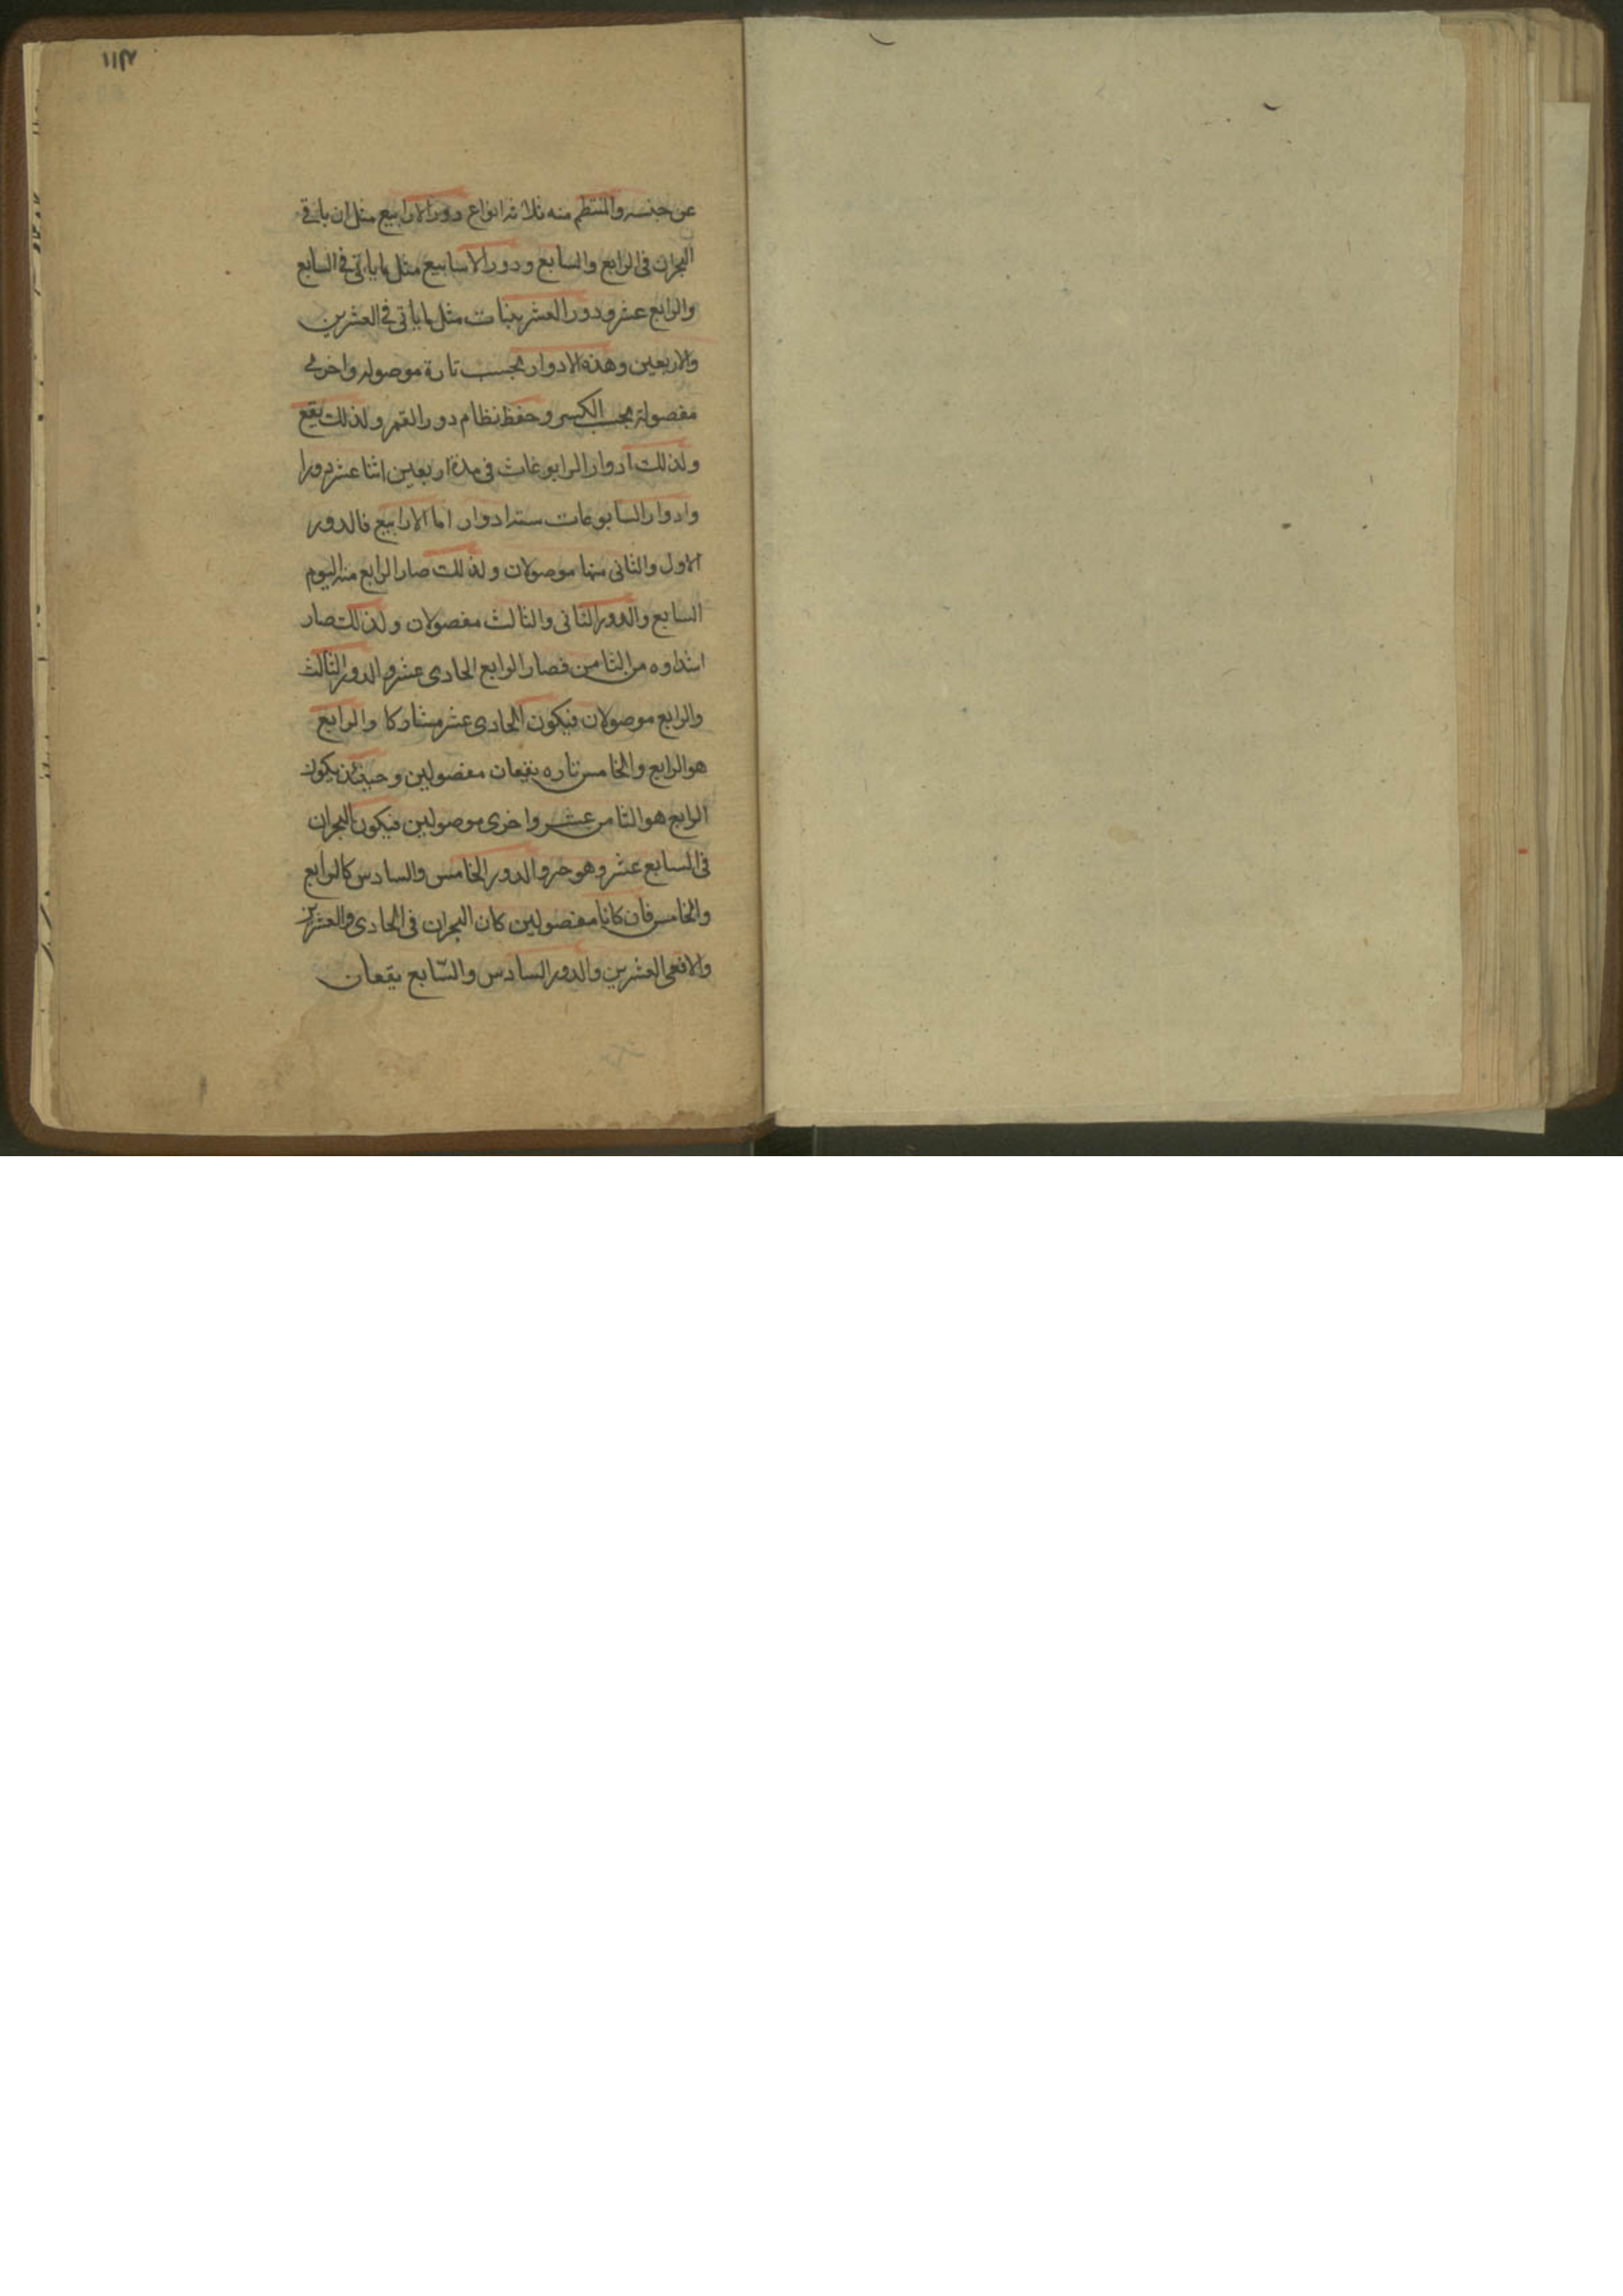 ١١٣
عن جنسه والمنتظم منه ثلاثه انواع دور الارابيع مثل ان ياتي
البحران في الرابع والسابع ودور الاسابيع مثل ما ياتي في السابع
والرابع عشر ودور العشرينات مثل ما ياتي في العشرين
والاربعين وهذه الادوار بحسب تارة موصوله واخرى
مفصولة بحسب الكسر وحفظ نظام دور القمر ولذلك يقع
ولذلك ادوار الرابوعات في مدة اربعين اثنا عشر دورا
وادوار السابوعات ستة ادوار اما الارابيع فالدور
الاول والثاني منها موصولان ولذلك صار الرابع منه اليوم
السابع والدور الثاني والثالث مفصولان ولذلك صار
ابتداوه من الثامن فصار الرابع الحادي عشر والدور الثالث
والرابع موصولان فيكون الحادي عشر مشاركا والرابع
هو الرابع والخامس تاره يقعان مفصولين وحينئذ يكون
الرابع هو الثامن عشر واخرى موصولين فيكون البحران
في السابع عشر وهو حر والدور الخامس والسادس كالرابع
والخامس فان كانا مفصولين كان البحران في الحادي والعشرين
والا ففي العشرين والدور السادس والسّابع يقعان